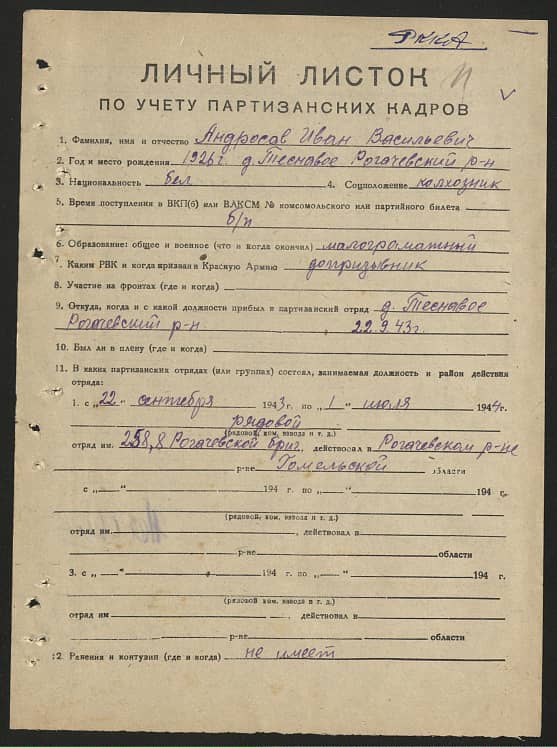 РККА.
ЛИЧНЫЙ ЛИСТОК
ПО УЧЕТУ ПАРТИЗАНСКИХ КАДРОВ
1. Фамилия, имя и отчество Андросав Иван Васильевич
2. Год и место рождения 1926 г. д. Теснавое Рогачевский р-н
3. Национальность бел 4. Соцположение колхозник
5. Время поступления в ВКП(б) или ВЛКСМ № комсомольского или партийного билета
б/п
6. Образование: общее и военное (что и когда окончил) малограматный
7. Каким РВК и когда призван в Красную Армию допризывник
8. Участие на фронтах (где и когда)
9. Откуда, когда и с какой должности прибыл в партизанский отряд д. Теснавое
Рогачевский р-н. 22.9.43 г.
10. Был ли в плену (где и когда)
11. В каких партизанских отрядах (или группах) состоял, занимаемая должность и район действия
отряда:
1. с „22" сентября 1943 г. по „1" июля 1944 г.
рядовой
(рядовой, ком. взвода и т. д.)
отряд им. 258, 8 Рогачевской бриг, действовал в Рогачевском р-не
р-не Гомельской области
с „—" 194 г. по „—" 194 г.
(рядовой, ком. взвода и т. д.)
отряд им. , действовал в
р-не области
3. с „—" 194 г. по „—" 194 г.
(рядовой, ком. взвода и т. д.)
отряд им , действовал в
р-не области
12. Ранения и контузии (где и когда) не имеет